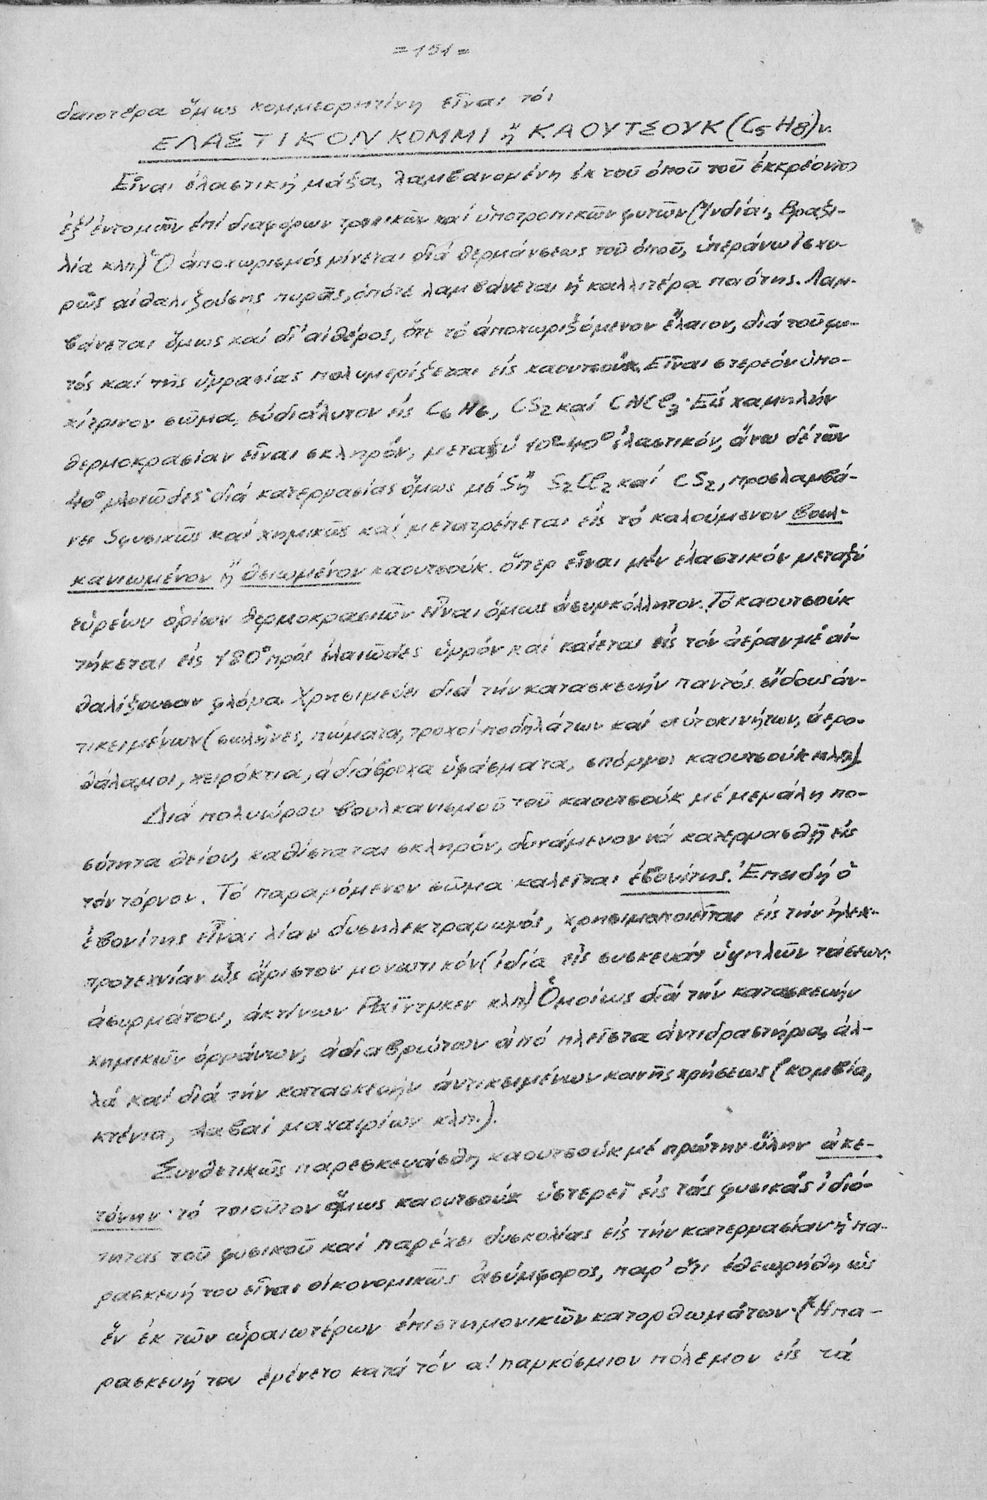 =151=
δαιοτέρα ὅμως κομμεορητίνη εἶναι τό:
ΕΛΑΣΤΙΚΟΝ ΚΟΜΜΙ ἤ ΚΑΟΥΤΣΟΥΚ (C5H8)ν.
Εἶναι ἐλαστική μάζα, λαμβανομένη ἐκ τοῦ ὀποῦ τοῦ ἐκκρέοντος
ἐξ' ἐντομῶν ἐπί διαφόρων τροπικῶν καί ὑποτροπικῶν φυτῶν (Ἰνδία, Βραζι-
λία κλπ) Ὁ ἀποχωρισμός γίνεται διά θερμάνσεως τοῦ ὀποῦ, ὑπεράνω ἰσχυ-
ρῶς αἰθαλιζούσης πυρᾶς, ὁπότε λαμβάνεται ἡ καλλιτέρα ποιότης. Λαμ-
βάνεται ὅμως καί δι' αἰθέρος, ὅτε τό ἀποχωριζόμενον ἔλαιον, διά τοῦ φω-
τός καί τῆς ὑγρασίας πολυμερίζεται εἰς καουτσούκ. Εἶναι στερεόν ὑπο-
κίτρινον σῶμα, εὐδιάλυτον εἰς C6H6, CS2 καί CHCl3. Εἰς χαμηλήν
θερμοκρασίαν εἶναι σκληρόν, μεταξύ 10°-40° ἐλαστικόν, ἄνω δέ τῶν
40° γλοιῶδες· διά κατεργασίας ὅμως μέ S ἤ S2Cl2 καί CS2, προσλαμβά-
νει S φυσικῶς καί χημικῶς καί μετατρέπεται εἰς τό καλούμενον βουλ-
κανιωμένον ἤ θειωμένον καουτσούκ. ὅπερ εἶναι μέν ἐλαστικόν μεταξύ
εὐρέων ὁρίων θερμοκρασιῶν εἶναι ὅμως ἀσυγκόλλητον. Τό καουτσούκ
τήκεται εἰς 180° πρός ἐλαιῶδες ὑγρόν καί καίεται εἰς τόν ἀέραν μέ αἰ-
θαλίζουσαν φλόγα. Χρησιμεύει διά τήν κατασκευήν παντός εἴδους ἀν-
τικειμένων (σωλῆνες, πώματα, τροχοί ποδηλάτων καί αὐτοκινήτων, ἀερο-
θάλαμοι, χειρόκτια, ἀδιάβροχα ὑφάσματα, σπόγγοι καουτσούκ κλπ).
Διά πολυώρου βουλκανισμοῦ τοῦ καουτσούκ μέ μεγάλη πο-
σότητα θείου, καθίσταται σκληρόν, δυνάμενον νά κατεργασθῇ εἰς
τόν τόρνον. Τό παραγόμενον σῶμα καλεῖται ἐβονίτης. Ἐπειδή ὁ
ἐβονίτης εἶναι λίαν δυσηλεκτραγωγός, χρησιμοποιεῖται εἰς τήν ἠλεκ-
τροτεχνίαν ὡς ἄριστον μονωτικόν (ἰδία εἰς συσκευάς ὑψηλῶν τάσεων,
ἀσυρμάτου, ἀκτίνων Ραῖντγκεν κλπ) Ὁμοίως διά τήν κατασκευήν
χημικῶν ὀργάνων, ἀδιαβρώτων ἀπό πλεῖστα ἀντιδραστήρια, ἀλ-
λά καί διά τήν κατασκευήν ἀντικειμένων κοινῆς χρήσεως (κομβία,
κτένια, λαβαί μαχαιρίων κλπ.).
Συνθετικῶς παρεσκευάσθη καουτσούκ μέ πρώτην ὕλην ἀκε-
τόνην· τό τοιοῦτον ὅμως καουτσούκ ὑστερεῖ εἰς τάς φυσικάς ἰδιό-
τητας τοῦ φυσικοῦ καί παρέχει δυσκολίας εἰς τήν κατεργασίαν ἡ πα-
ρασκευή του εἶναι οἰκονομικῶς ἀσύμφορος, παρ' ὅτι ἐθεωρήθη ὡς
ἕν ἐκ τῶν ὡραιοτέρων ἐπιστημονικῶν κατορθωμάτων. (Ἡ πα-
ρασκευή του ἐγένετο κατά τόν α! παγκόσμιον πόλεμον εἰς τά